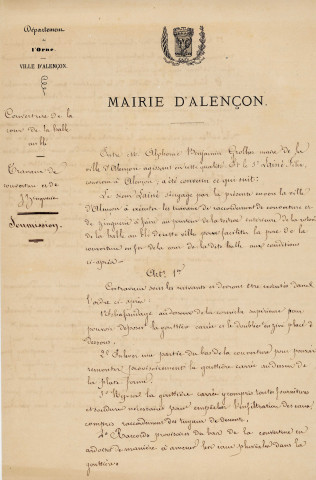 Département
de
l'Orne
VILLE D'ALENÇON.
Couverture de la
cour de la halle
au blé
Travaux de
couverture et de
Zinguerie
Soumission.
MAIRIE D'ALENÇON.
Entre M. Alphonse Benjamin Grollier maire de la
ville d'Alençon agissant en cette qualité et le Sr
à Alençon, a été convenu ce qui suit:
Le Sieur s'engage par la présente envers la ville
d'Alençon à exécuter les travaux de raccordement de couverture et
de Zinguerie à faire au pourtour de la intérieur de la
de la halle au blé de cette ville pour faciliter la pose de la
couverture en fer de la cour de la dite halle aux conditions
ci-après
Art. 1er
Ces travaux sont les suivants et devront être exécutés dans
l'ordre ci-après:
1° Echafaudage au-dessus de la corniche supérieure pour
pouvoir déposer la gouttière carrée et le doublis en zinc placé de
dessous.
2° Enlever une partie du bas de la couverture pour pouvoir
remonter provisoirement la gouttière carrée au-dessus de
la plate forme.
3° la gouttière carrée y compris toutes fournitures
et soudures nécessaires pour empêcher l'infiltration des eaux,
compris raccordement des tuyaux de descente.
4° Raccords provisoires du bas de la couverture en
ardoises de manière à amener les eaux pluviales dans la
gouttière